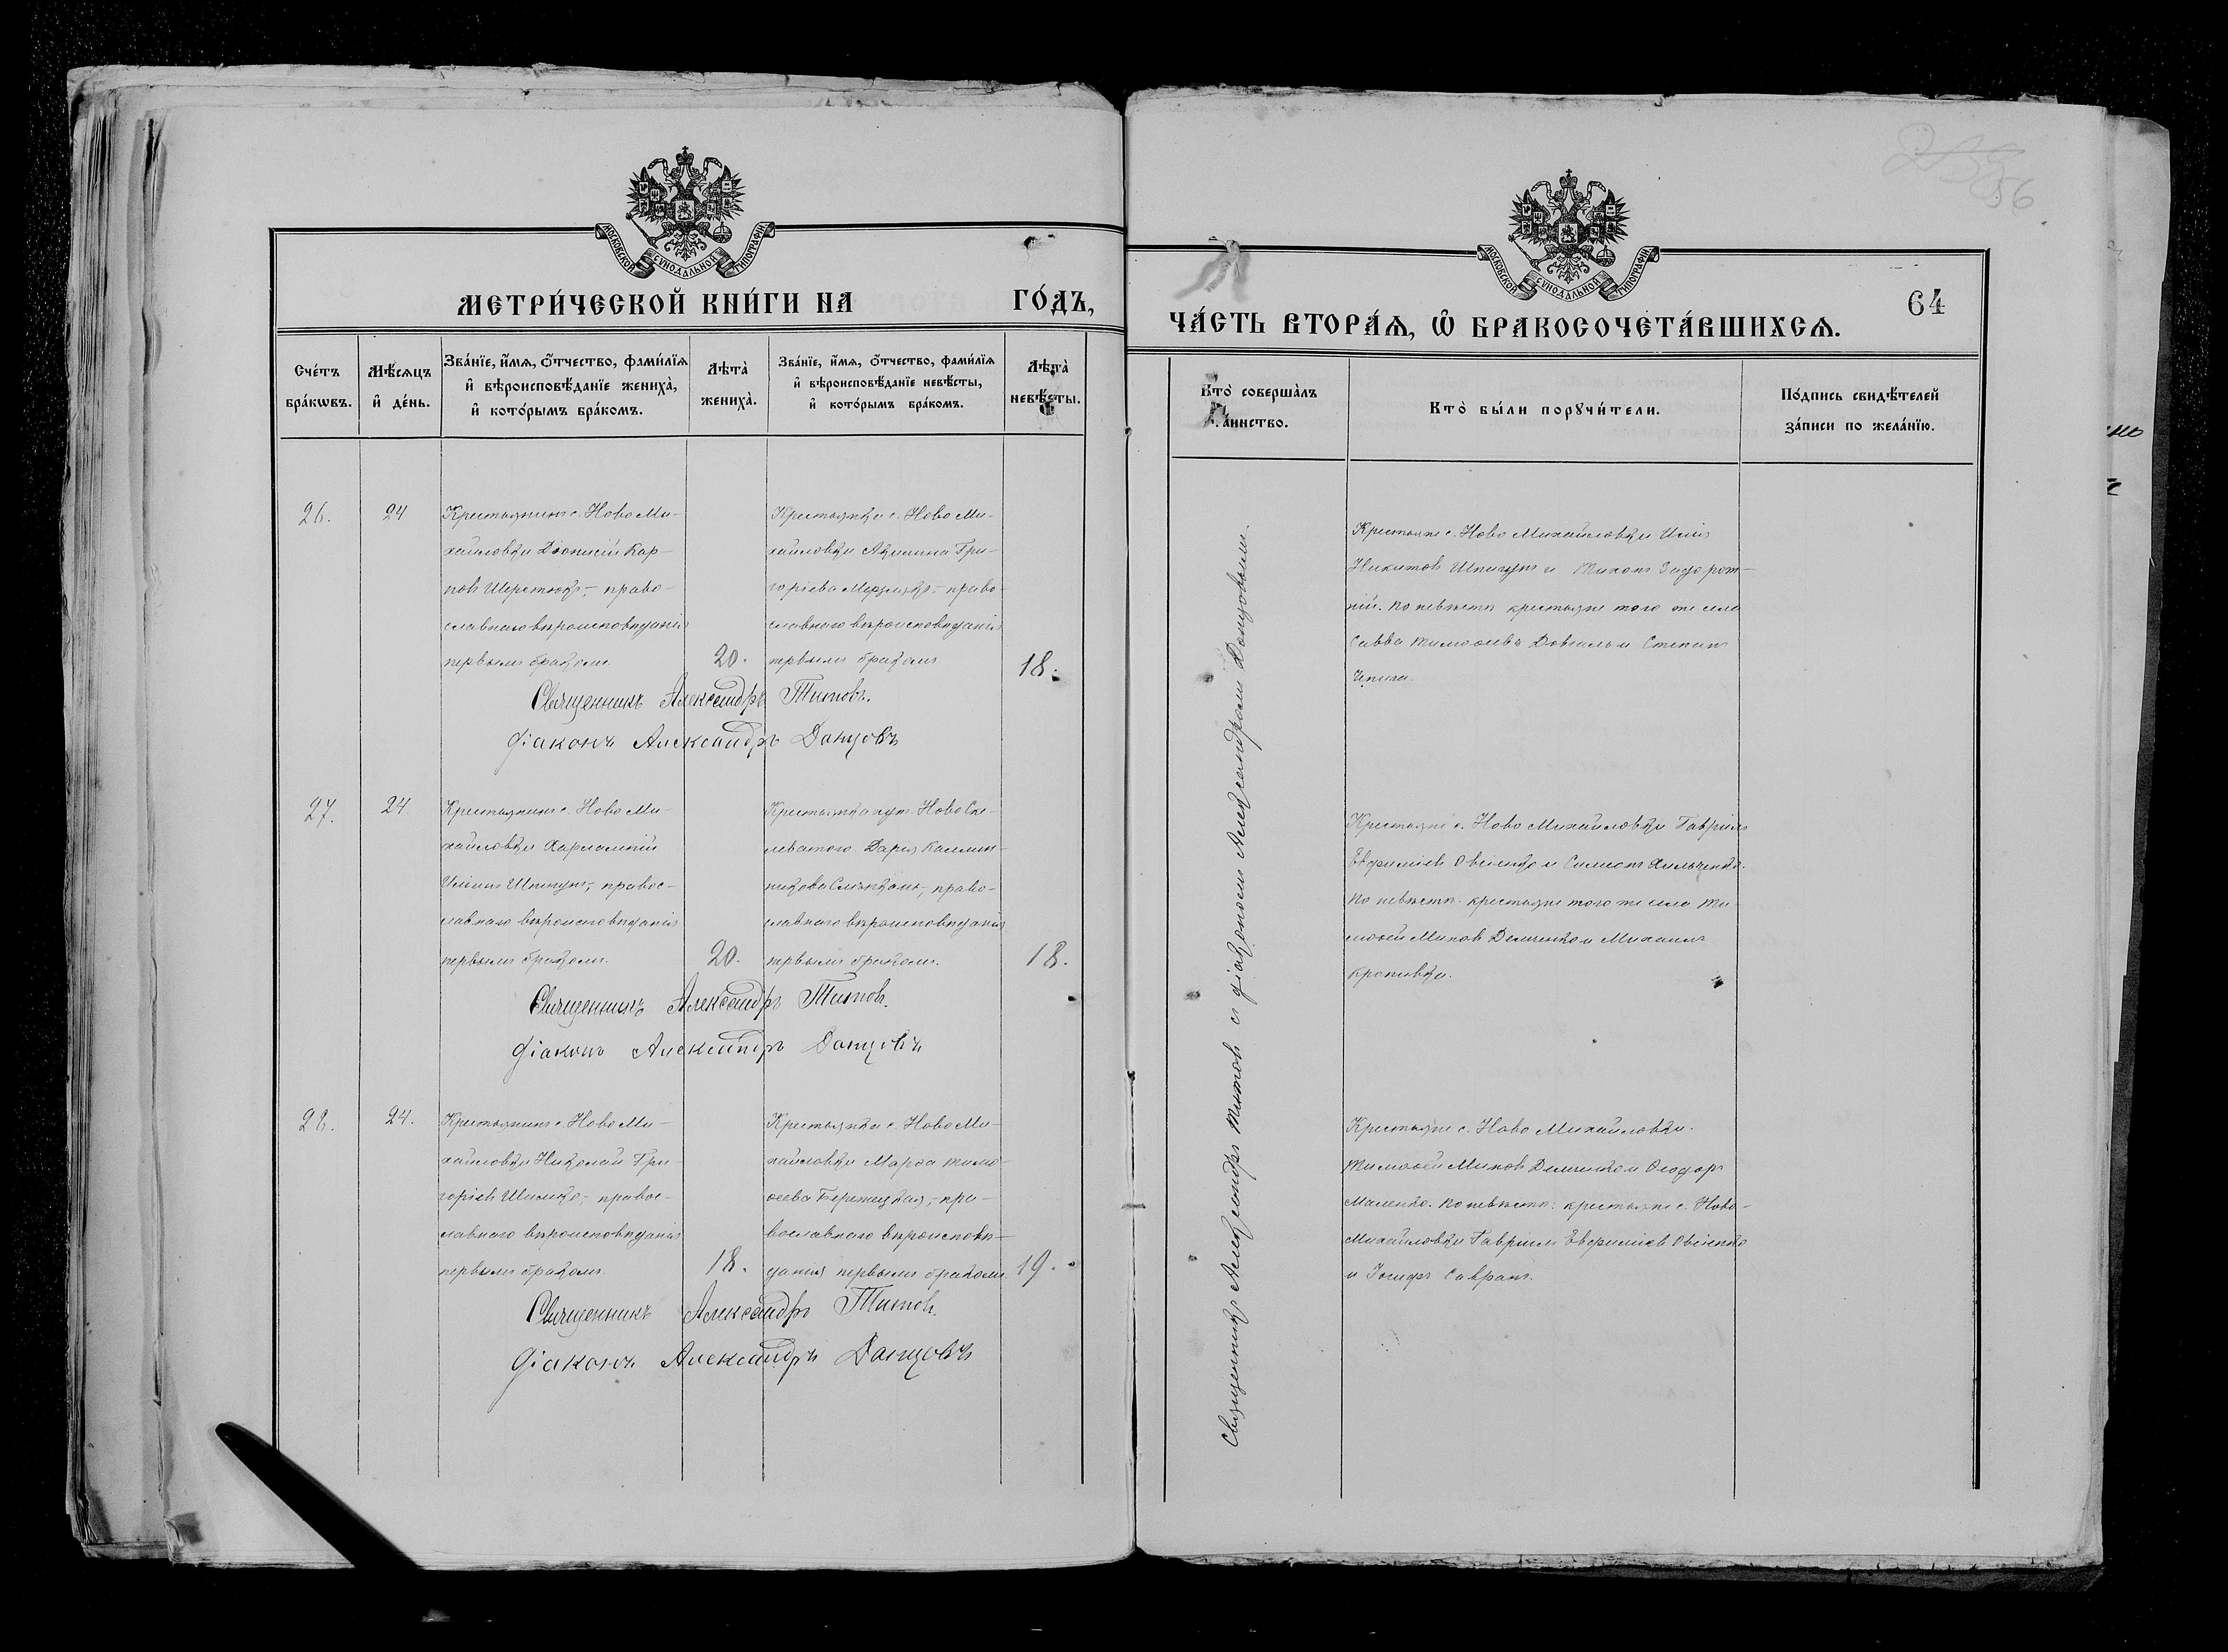 МОСКОВСКОЙ СѴНОДАЛЬНОЙ ТИПОГРАФІИ
МЕТРИ́ЧЕСКОЙ КНИ́ГИ НА ГО́ДЪ,
Сче́тъ бра́кѡвъ.
Мѣ́сѧцъ и҆ де́нь.
Зва́нїе, и҆́мѧ, ѻ҆́тчество, фами́лїѧ
и҆ вѣроисповѣ́данїе жениха̀,
и҆ кото́рымъ бра́комъ.
Лѣта̀ жениха̀.
Зва́нїе, и҆́мѧ, ѻ҆́тчество, фами́лїѧ
и҆ вѣроисповѣ́данїе невѣ́сты,
и҆ кото́рымъ бра́комъ.
Лѣта̀ невѣ́сты.
26.
24
Крестьянинъ с. Ново Ми-
хайловки Діонисій Кар-
повъ Шерстюкъ, - право-
славнаго вѣроисповѣданія
первымъ бракомъ.
20.
Крестьянка с. Ново Ми-
хайловки Акилина Гри-
горіева - право-
славнаго вѣроисповѣданія
первымъ бракомъ.
18.
Священникъ Александръ Титовъ.
Діаконъ Александръ Донцовъ
27.
24.
Крестьянинъ с. Ново Ми-
хайловки Харлампій
Иліинъ Шпигунъ, - правос-
лавнаго вѣроисповѣданія
первымъ бракомъ.
20.
Крестьянка хут. Ново Ско-
леватого Дарія Каллин-
никова - право-
славнаго вѣроисповѣданія
первымъ бракомъ.
18.
Священникъ Александръ Титовъ.
Діаконъ Александръ Донцовъ
28.
24.
Крестьянинъ с. Ново Ми-
хайловки Николай Гри-
горіевъ Шилько, - правос-
лавнаго вѣроисповѣданія
первымъ бракомъ.
18.
Крестьянка с. Ново Ми-
хайловки Марѳа Тимо-
ѳеева Бережецкая, - пра-
вославнаго вѣроисповѣ-
данія первымъ бракомъ.
19.
Священникъ Александръ Титовъ.
Діаконъ Александръ Донцовъ
256
МОСКОВСКОЙ СѴНОДАЛЬНОЙ ТИПОГРАФІИ
64
ЧА́СТЬ ВТОРА́Ѧ, Ѽ БРАКОСОЧЕТА́ВШИХСѦ.
Кто̀ соверша́лъ
Та́инство.
Кто̀ бы́ли порꙋчи́тели.
По́дпись свидѣ́телей
за́писи по жела́нїю.
Священникъ Александръ Титовъ съ діакономъ Александромъ Донцовымъ.
Крестьяне с. Ново Михайловки Илія
Никитовъ Шпигунъ и Тихонъ Задорож-
ній. По невѣстѣ крестьяне того же села
Савва Тимоѳеевъ Довгаль и Степанъ
Крестьяне с. Ново Михайловки Гавріилъ
Евфиміевъ Овсіенко и Симеонъ Хильченко.
По невѣстѣ крестьяне того же села Ти-
моѳей Миновъ Демченко и Михаилъ
Кропивка.
Крестьяне с. Ново Михайловки
Тимоѳей Миновъ Демченко и Ѳеодоръ
Маленко. По невѣстѣ: крестьяне с. Ново-
Михайловки Гавріилъ Евфиміевъ Овсіенко
и Іосифъ Савранъ.